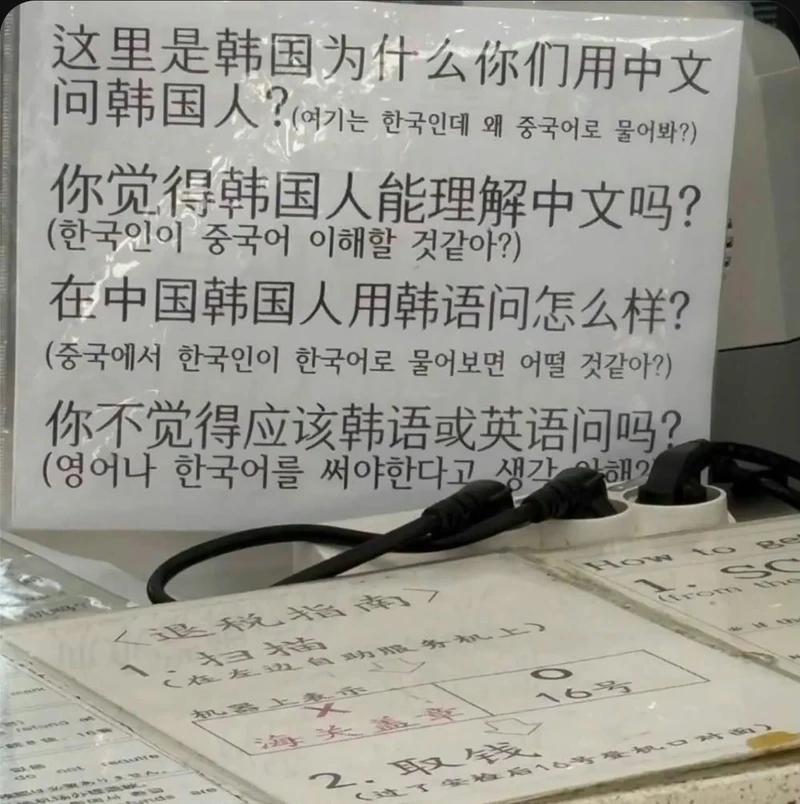 这里是韩国为什么你们用中文
问韩国人?(여기는 한국인데 왜 중국어로 물어봐?)
你觉得韩国人能理解中文吗?
(한국인이 중국어 이해할 것같아?)
在中国韩国人用韩语问怎么样?
(중국에서 한국인이 한국어로 물어보면 어떨 것같아?)
你不觉得应该韩语或英语问吗?
(영어나 한국어를 써야한다고 생각 안해?
<退税指南>
1. 扫描
(在左边自助服务机上)
机器上表示
X
O
海关盖章
16号
2. 取钱
(过了安检后16号登机口对面)
How to ge
1. SC
(from the
* if th
do not require